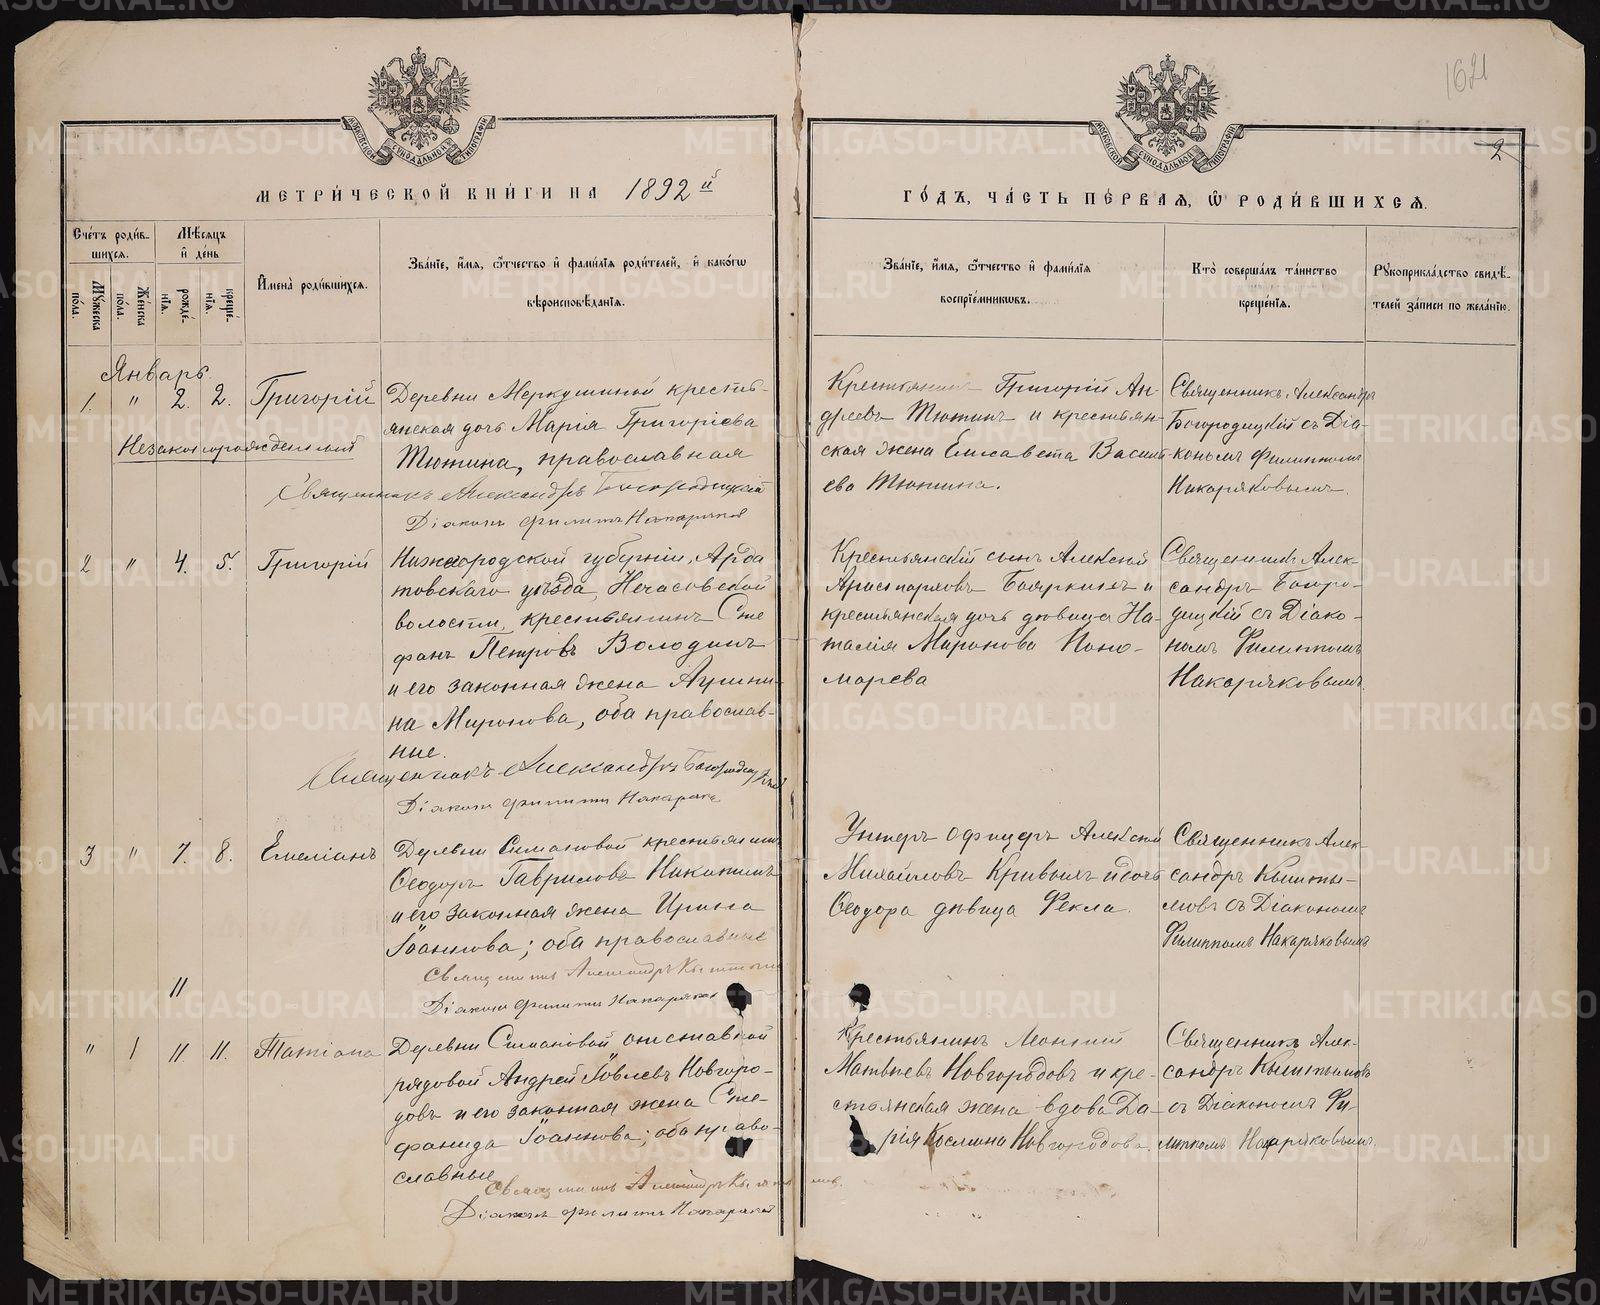 1621
2
МОСКОВСКОЙ СѴНОДАЛЬНОЙ ТИПОГРАФІИ
МОСКОВСКОЙ СѴНОДАЛЬНОЙ ТИПОГРАФІИ
МЕТРИ́ЧЕСКОЙ КНИ́ГИ НА 1892й
ГО́ДЪ, ЧА́СТЬ ПЕ́РВАѦ, Ѡ҆ РОДИ́ВШИХСѦ.
Сче́тъ роди́в-
шихсѧ.
Мꙋ́жеска по́ла.
Же́нска по́ла.
Мѣ́сѧцъ
и҆ де́нь
рожде́-
нїѧ.
креще́-
нїѧ.
И҆мена̀ роди́вшихсѧ.
Зва́нїе, и҆́мѧ, ѻ҆́тчество и҆ фами́лїѧ роди́телей, и҆ како́гѡ
вѣроисповѣ́данїѧ.
Зва́нїе, и҆́мѧ, ѻ҆́тчество и҆ фами́лїѧ
воспрїе́мникѡвъ.
Кто̀ соверша́лъ та́инство
креще́нїѧ.
Рꙋкоприкла́дство свидѣ́-
телей за́писи по жела́нїю.
Январь
1. " 2. 2. Григорій
Незаконнорожденный
Деревни Меркушиной кресть-
янская дочь Марія Григоріева
Тютина, православная
Священникъ Александръ Богородицкій
Діаконъ Филиппъ Накаряковъ
Крестьянинъ Григорій Ан-
дреевъ Тютинъ и крестьян-
ская жена Елисавета Василі-
ева Тютина.
Священникъ Александръ
Богородицкій съ Діа-
кономъ Филиппомъ
Накаряковымъ.
2 " 4. 5. Григорій
Нижегородской губерніи, Арда
товскаго уѣзда, Нечасовской
волости, крестьянинъ Сте
фанъ Петровъ Володинъ
и его законная жена Агрипи-
на Миронова, оба православ-
ные.
Священникъ Александръ Богородицкій
Діаконъ Филиппъ Накаряковъ
Крестьянскій сынъ Алексей
Аристарховъ Бояркинъ и
крестьянская дочь дѣвица На-
талія Миронова Поно-
марева
Священникъ Алек-
сандръ Богоро-
дицкій съ Діако-
номъ Филиппомъ
Накаряковымъ.
3 " 7. 8. Емеліанъ
Деревни Симановой крестьянинъ
Ѳеодоръ Гавриловъ Никонинъ
и его законная жена Ирина
Іоаннова; оба православные
Священникъ Александръ Кыштымовъ
Діаконъ Филиппъ Накаряковъ
Унтеръ офицеръ Алексей
Михайловъ Кривыхъ и дочь
Ѳеодора дѣвица Ѳекла.
Священникъ Алек-
сандръ Кышты-
мовъ съ Діакономъ
Филиппомъ Накаряковымъ
11
" 1 11. 11. Татіана
Деревни Симановой отставной
рядовой Андрей Іовлевъ Новгоро-
довъ и его законная жена Сте-
фанида Іоаннова; оба право-
славные
Священникъ Александръ Кыштымовъ
Діаконъ Филиппъ Накаряковъ
Крестьянинъ
Матвѣевъ Новгородовъ и кре-
стьянская жена вдова Да-
рія Космина Новгородова.
Священникъ Алек-
сандръ Кыштымовъ
съ Діакономъ Фи-
липпомъ Накаряковымъ.
METRIKI.GASO-URAL.RU